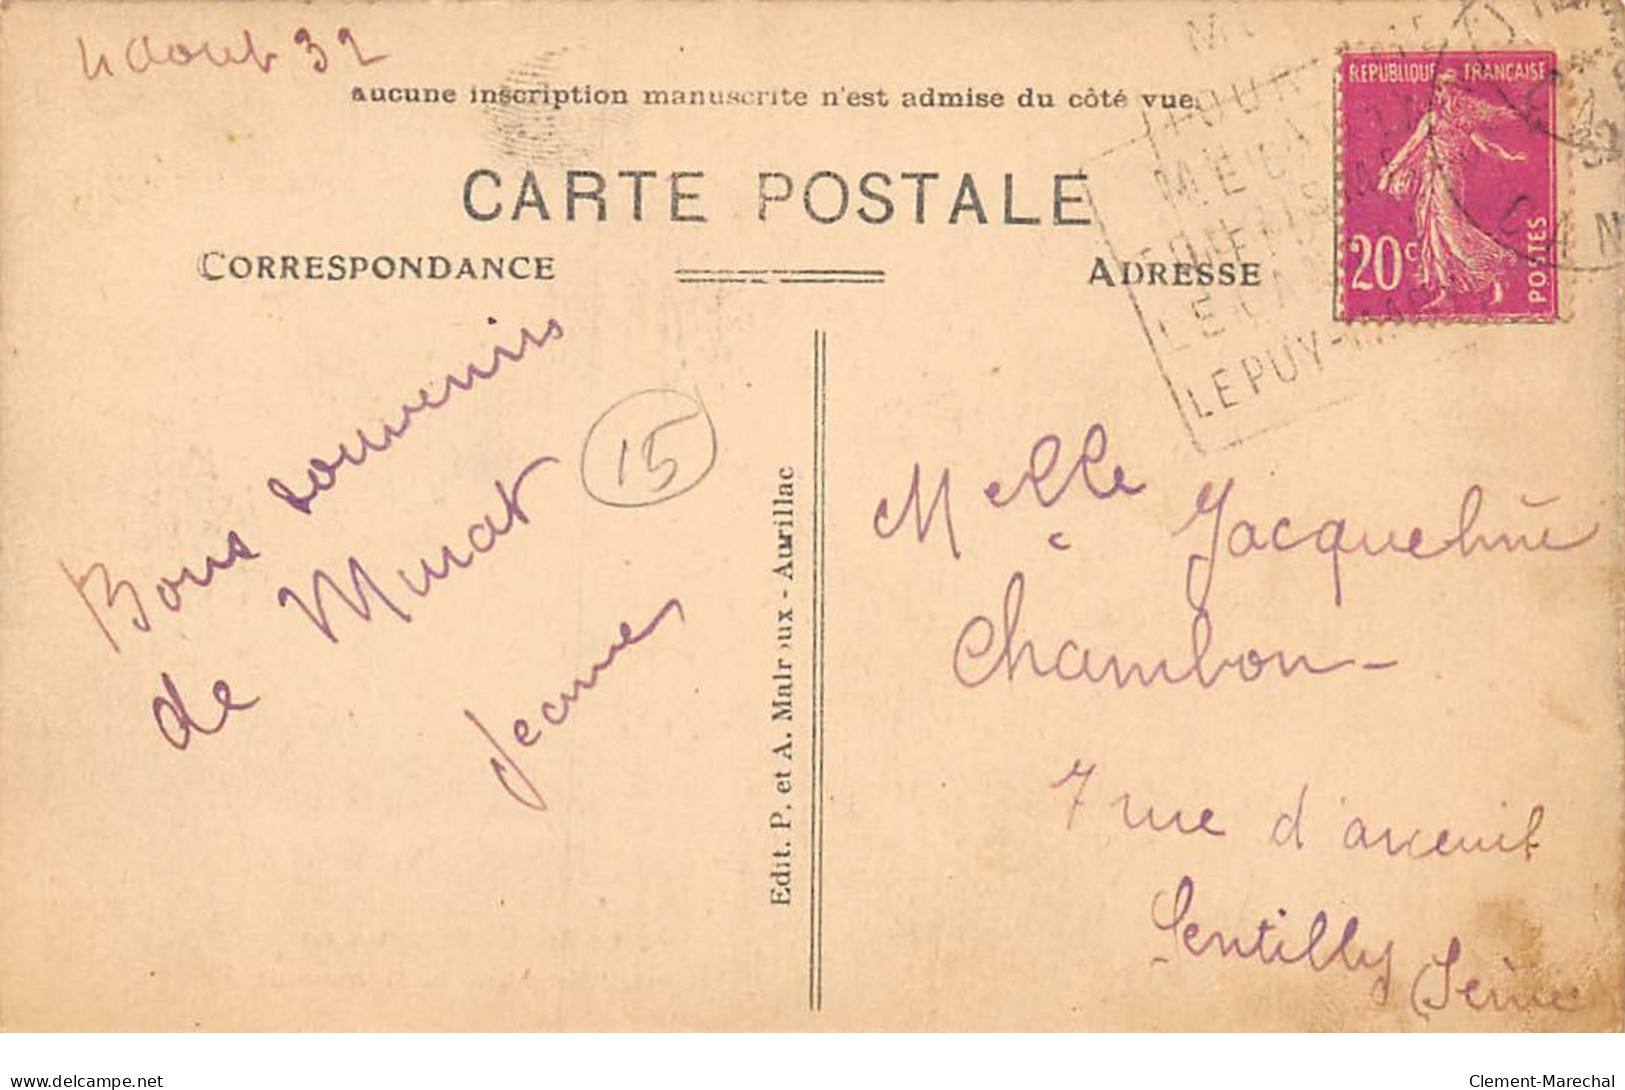 4 Aout 32
aucune inscription manuscrite n'est admise du côté vue.
CARTE POSTALE
CORRESPONDANCE
ADRESSE
REPUBLIQUE FRANCAISE
20c
POSTES
LE PUY-MARY
Bons souvenirs
de Murat
Jeanne
15
Edit. P. et A. Malroux - Aurillac
Melle Jacqueline
Chambon -
7 rue d'arcueil
Gentilly (Seine
delcampe.net
Clement-Marechal